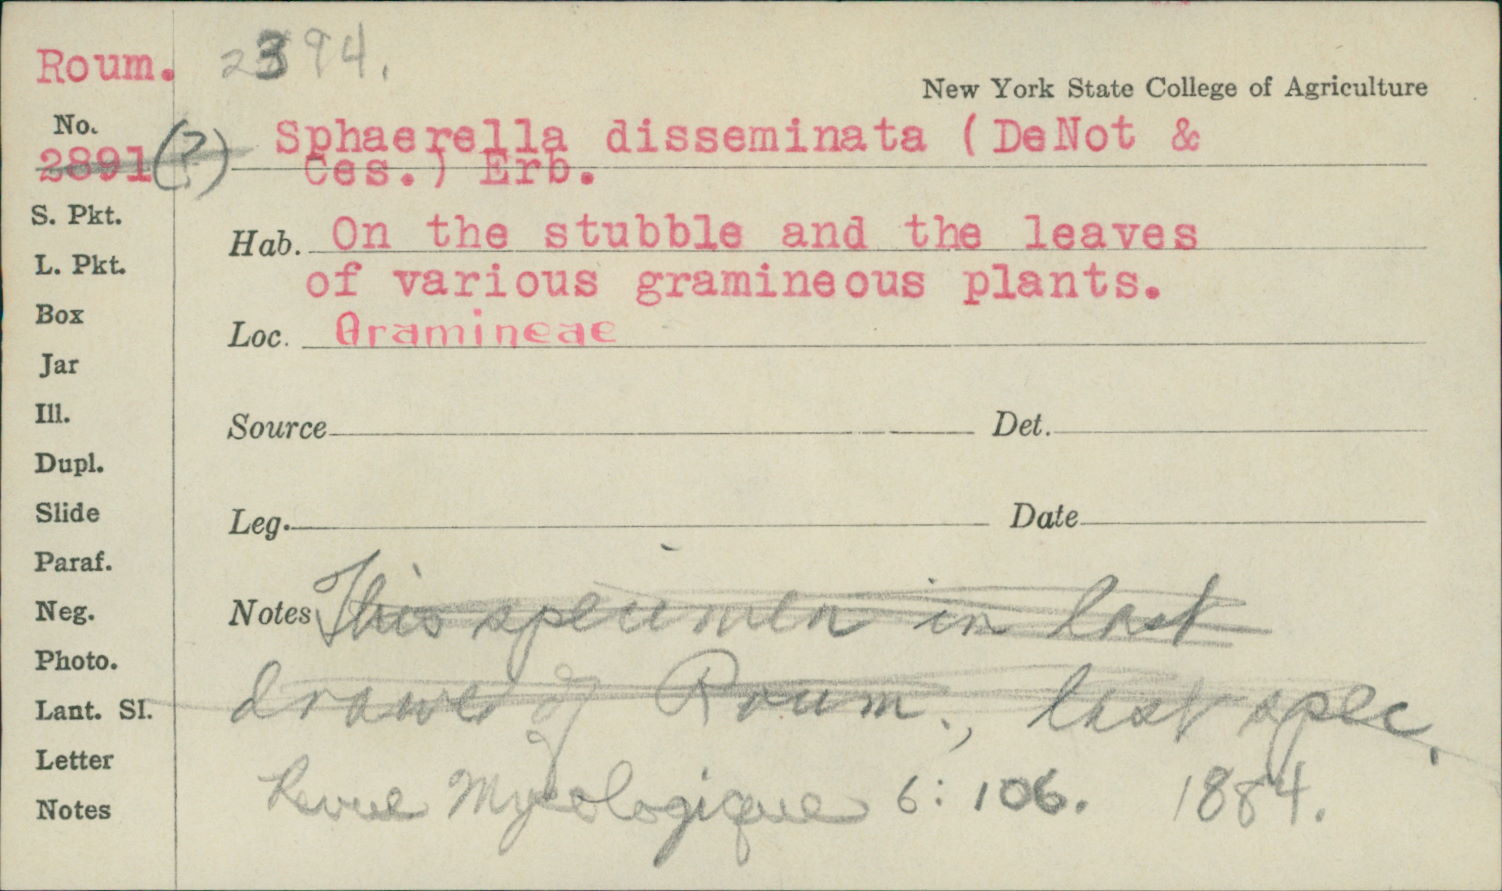 Roum. 2394.
New York State College of Agriculture
No.
2891 (?) Sphaerella disseminata (DeNot &
Ces.) Erb.
S. Pkt.
Hab. On the stubble and the leaves
L. Pkt.
of various gramineous plants.
Box
Loc. Gramineae
Jar
Ill.
Source Det.
Dupl.
Slide
Leg. Date
Paraf.
Neg.
Notes This specimen in last
Photo.
Lant. Sl.
drawer of Roum., last spec.
Letter
Revue Mycologique 6: 106. 1884.
Notes